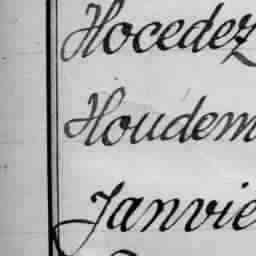 Hocedez
Houdem
Janvie